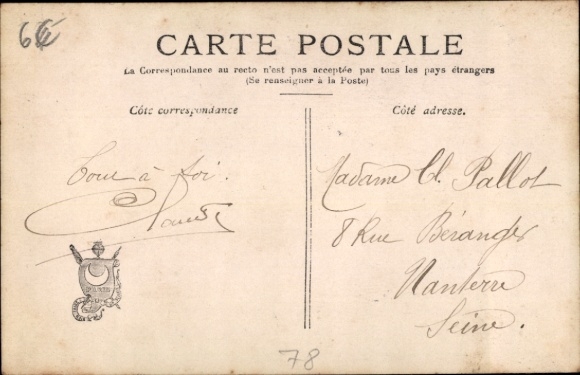 6€
CARTE POSTALE
La Correspondance au recto n'est pas acceptée par tous les pays étrangers
(Se renseigner à la Poste)
Côté correspondance
Côté adresse.
Tout à toi.
Madame Cl. Pallot
8 Rue Béranger
Nanterre
Seine.
78